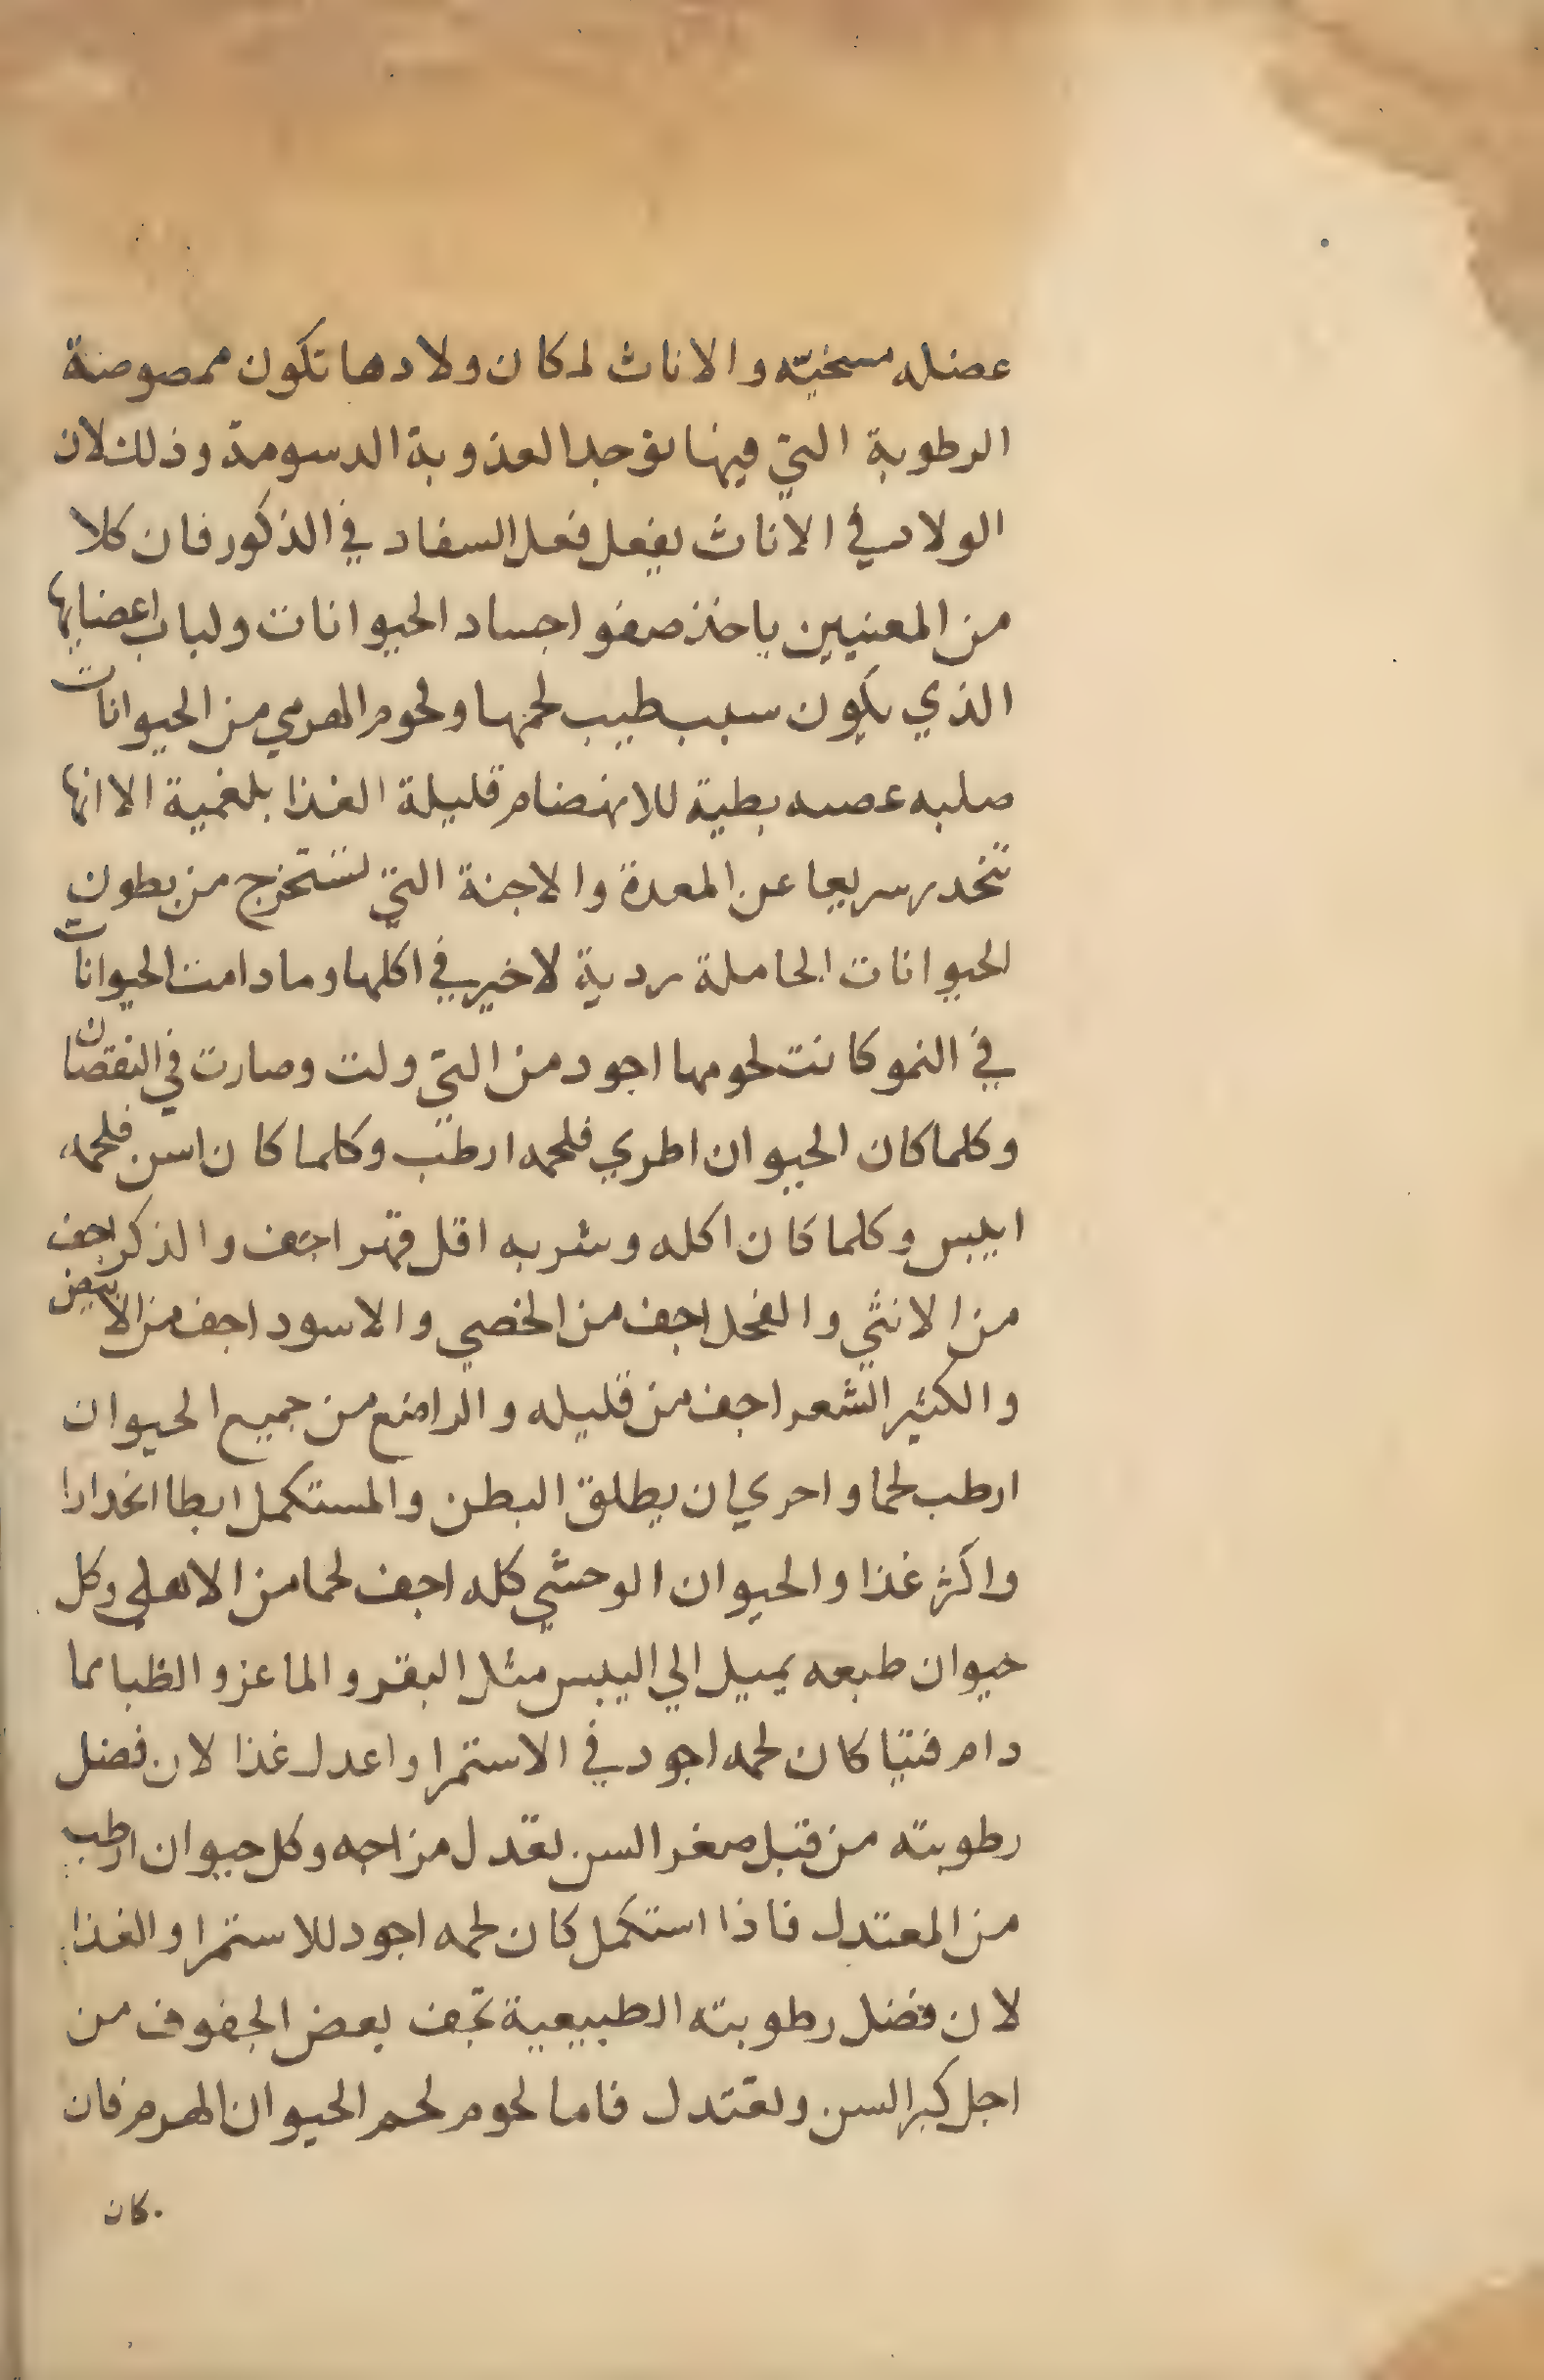 عضله سخيّه والاناث لمكان ولادها تكون ممصوصة
الرطوبة التي فيها توجد العذوبة الدسومة وذلك لان
الولاد في الاناث يفعل فعل السفاد في الذكور فان كلا
من المعنيين ياخذ صفو اجساد الحيوانات ولباب اعضايها
الذي يكون سبب طيب لحمها ولحوم الهرمي من الحيوانات
صلبه عصبه بطية للانهضام قليلة الغذا بلغمية الا انها
تنحدر سريعا عن المعدة والاجنة التي تستخرج من بطون
الحيوانات الحاملة ردية لا خير في اكلها وما دامت الحيوانات
في النمو كانت لحومها اجود من التي ولت وصارت في النقصان
وكلما كان الحيوان اطري فلحمه ارطب وكلما كان اسن فلحمه
ايبس وكلما كان اكله وشربه اقل فهر اجف والذكر اجف
من الانثي والفحل اجف من الخصي والاسود اجف من الابيض
والكثير الشعر اجف من قليله والراضع من جميع الحيوان
ارطب لحما واحري ان يطلق البطن والمستكمل ابطا انحدارا
واكثر غذا والحيوان الوحشي كله اجف لحما من الاهلي وكل
حيوان طبعه يميل الي اليبس مثل البقر والماعز والظبا مما
دام فتيا كان لحمه اجود في الاستمرا واعدل غذا لان فضل
رطوبته من قبل صغر السن تعدل مزاجه وكل حيوان ارطب
من المعتدل فاذا استكمل كان لحمه اجود للاستمرا والغذا
لان فضل رطوبته الطبيعية تجف بعض الجفوف من
اجل كبر السن وتعتدل فاما لحوم لحم الحيوان الهرم فان
كان